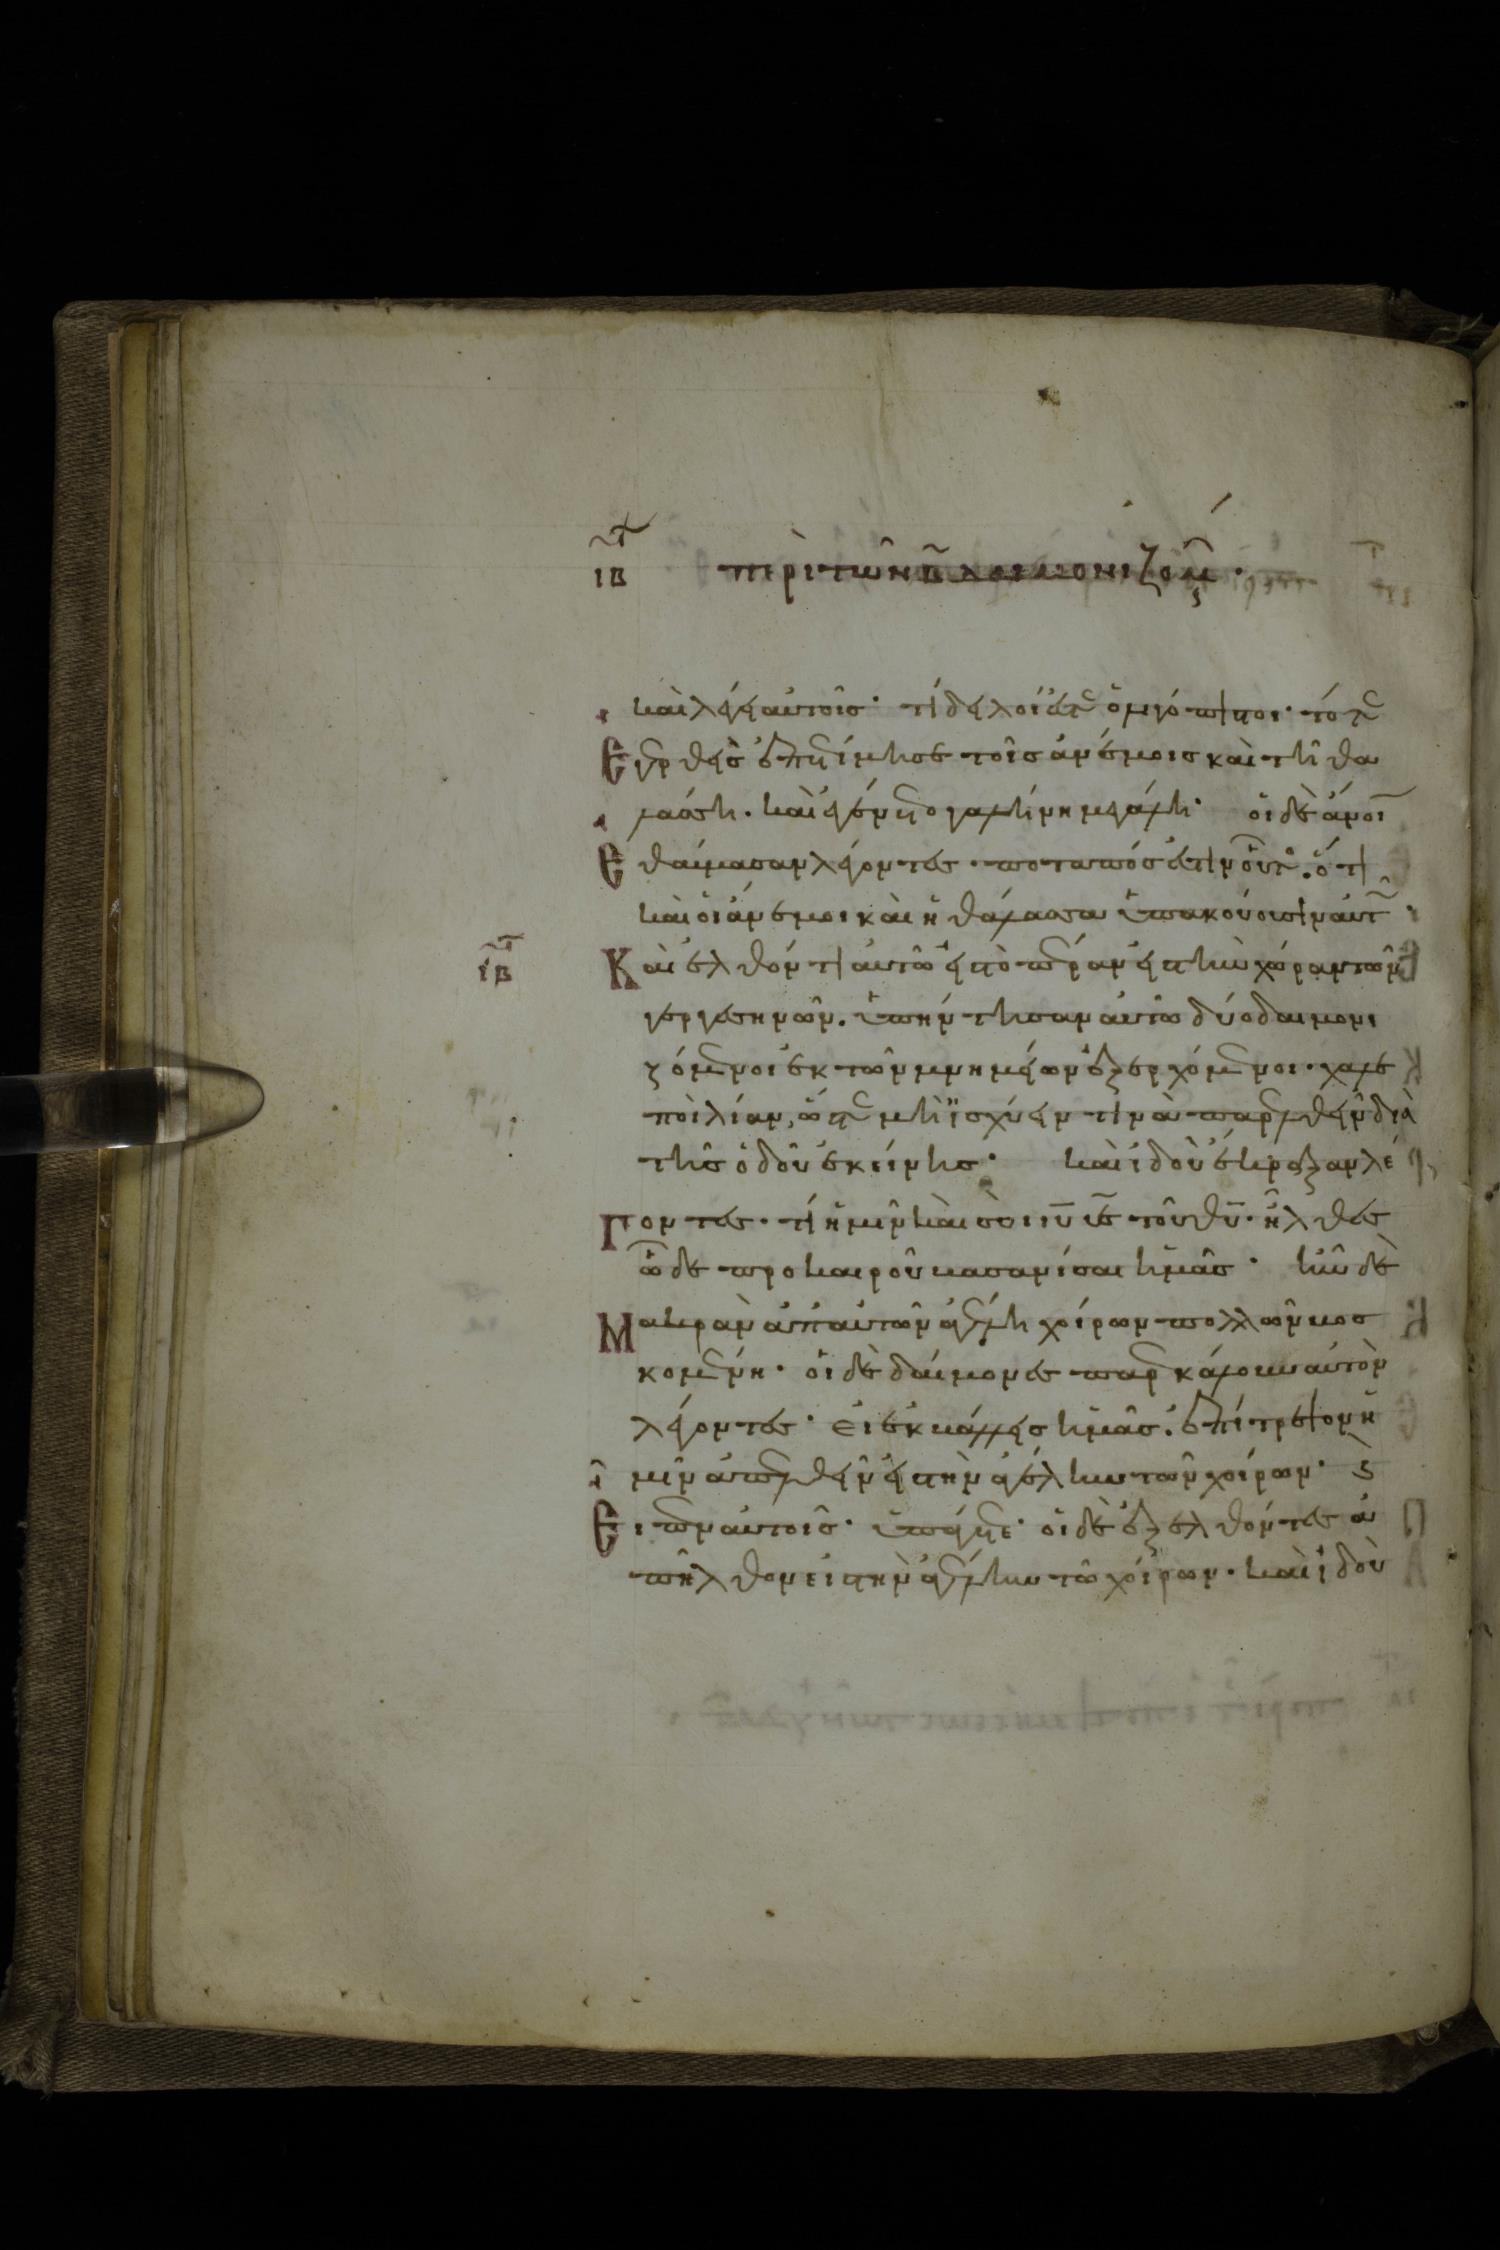 ιβ περὶ τῶν β δαιμονιζομ
καὶ λέγει αὐτοῖς· τί δειλοί ἐστε ὀλιγόπιστοι· τότε
Ἐγερθεὶς ἐπετίμησε τοῖς ἀνέμοις καὶ τῆ θα
λάσση. καὶ ἐγένετο γαλήνη μεγάλη· οἱ δὲ ἄνοι
Ἐθαύμασαν λέγοντες· ποταπός ἐστιν οὗτος. ὅτι
καὶ οἱ ἄνεμοι καὶ ἡ θάλασσα ὑπακούουσιν αὐτ·
ιβ Καὶ ἐλθόντι αὐτῶ εἰς τὸ πέραν εἰς τὴν χώραν τῶν
γεργεσηνῶν. ὑπήντησαν αὐτῶ δύο δαιμονι
ζόμενοι ἐκ τῶν μνημείων ἐξερχόμενοι· χαλε
ποὶ λίαν, ὥστε μὴ ἰσχύειν τινὰ παρελθεῖν διὰ
τῆς ὁδοῦ ἐκείνης· καὶ ἰδοὺ ἔκραξαν λέ
Γοντες· τί ἡμῖν καὶ σοὶ ιυ υἱὲ τοῦ θυ· ἦλθες
ὧδε προ καιροῦ βασανίσαι ἡμᾶς· ἦν δὲ
Μακρὰν ἀπ αὐτῶν ἀγέλη χοίρων πολλῶν βοσ
κομένη· οἱ δὲ δαίμονες παρεκάλουν αὐτὸν
λέγοντες· εἰ ἐκβάλλεις ἡμᾶς. ἐπίτρεψον ἡ
μῖν ἀπελθεῖν εἰς τὴν ἀγέλην τῶν χοίρων· ϗ
Εἶπεν αὐτοῖς· ὑπάγετε· οἱ δὲ ἐξελθόντες ἀ
πῆλθον εἰς τὴν ἀγέλην τῶ χοίρων. καὶ ἰδοὺ